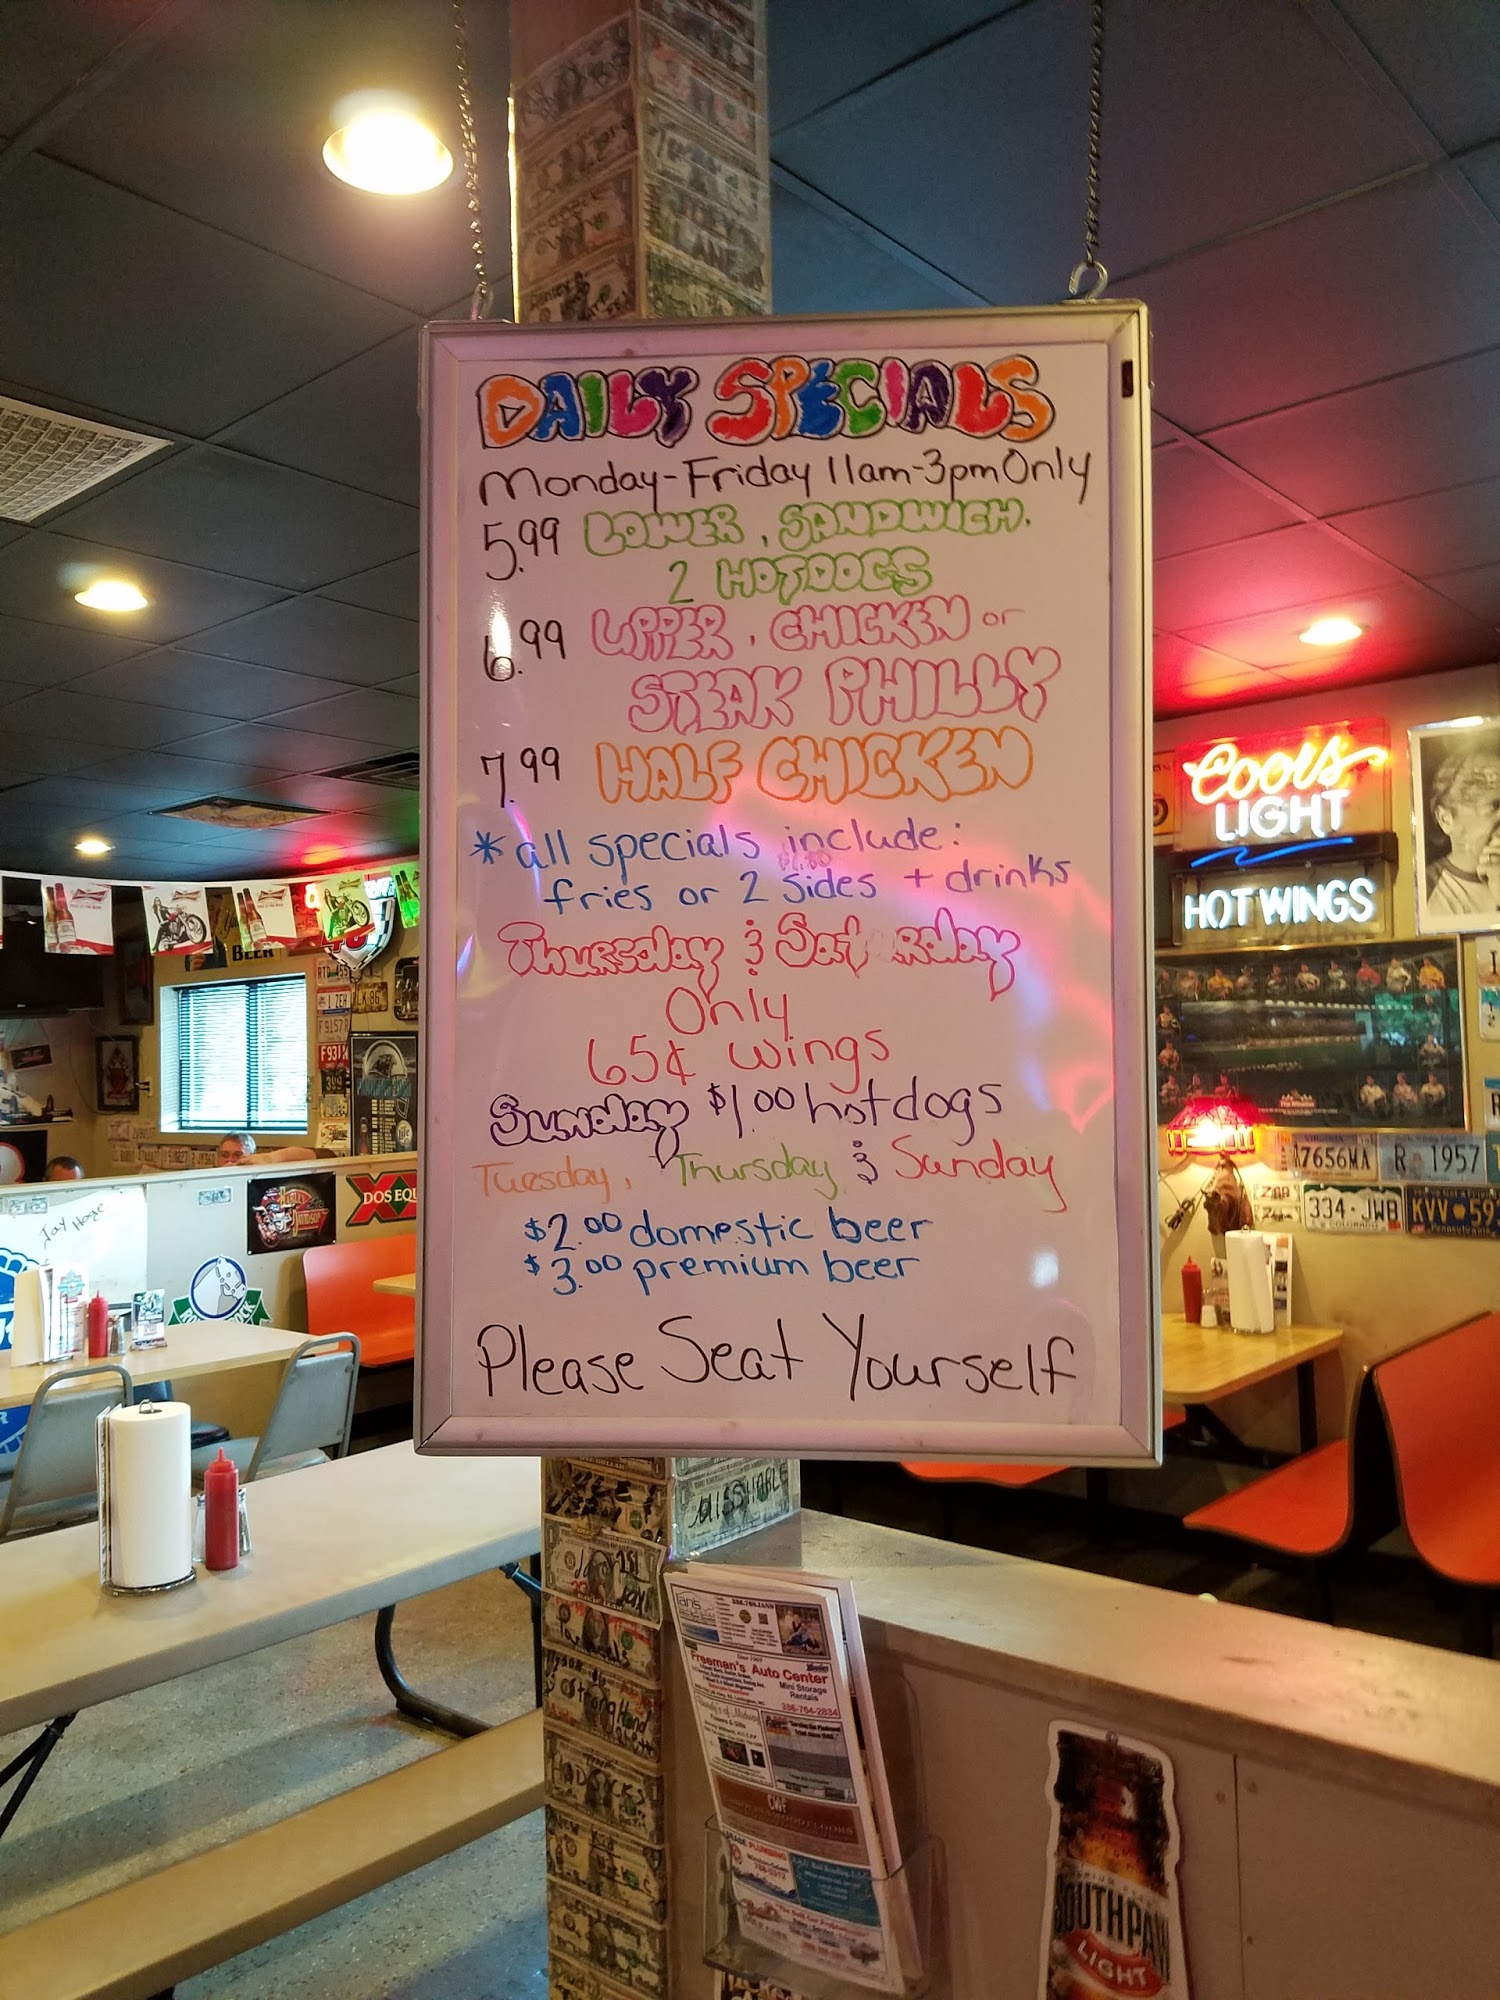 DAILY SPECIALS
Monday-Friday 11am-3pm Only
5.99 LOWER, SANDWICH.
2 HOTDOGS
6.99 UPPER, CHICKEN or
STEAK PHILLY
7.99 HALF CHICKEN
* all specials include:
fries or 2 sides + drinks
Thursday & Saturday
Only
65¢ wings
Sunday $1.00 hotdogs
Tuesday, Thursday & Sunday
$2.00 domestic beer
$3.00 premium beer
Please Seat Yourself
Coors
LIGHT
HOT WINGS
BEER
DOS EQU
Jay Hoge
A7656MA
R 1957
334-JWB
COLORADO
KVV 59
F9157R
MISS HABLE
Freeman's Auto Center
Mini Storage
Rentals
336-764-2834
CWF
SOUTHPAW
LIGHT